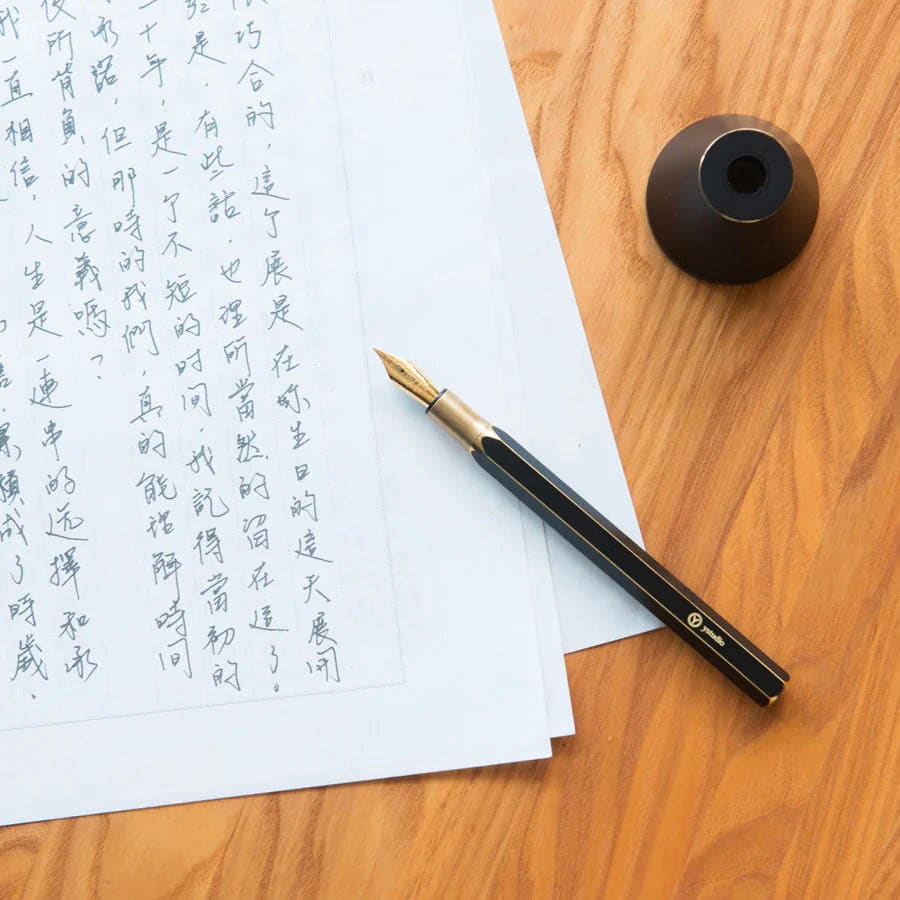 很巧合的，這个展是在妳生日的這天展開
於是，有些話，也理所當然的留在這了。
十年，是一个不短的时间，我記得當初的
承諾，但那時的我們，真的能理解時间
後所背負的意義嗎？
我一直相信，人生是一連串的选擇和承
累積成了時歲，
ystudio